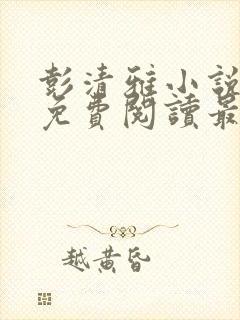 彭清雅小說
免費閱讀最
越黃昏